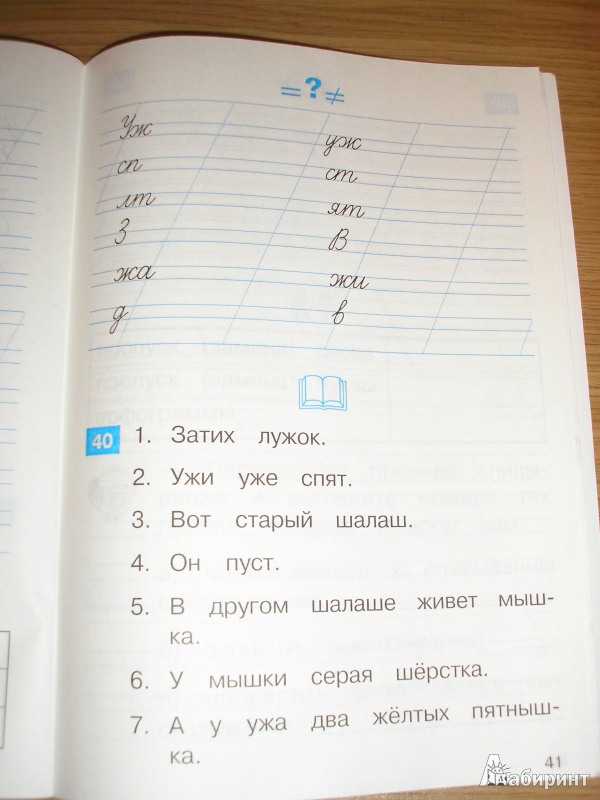 = ? ≠
Уж уж
сп ст
лт ят
З В
жа жи
д в
40 1. Затих лужок.
2. Ужи уже спят.
3. Вот старый шалаш.
4. Он пуст.
5. В другом шалаше живет мыш-
ка.
6. У мышки серая шёрстка.
7. А у ужа два жёлтых пятныш-
ка.
41
Лабиринт